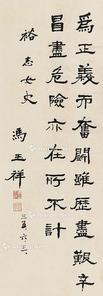 為正義而奮鬥雖歷盡艱辛
冒盡危險亦在所不計
裕志女史
馮玉祥